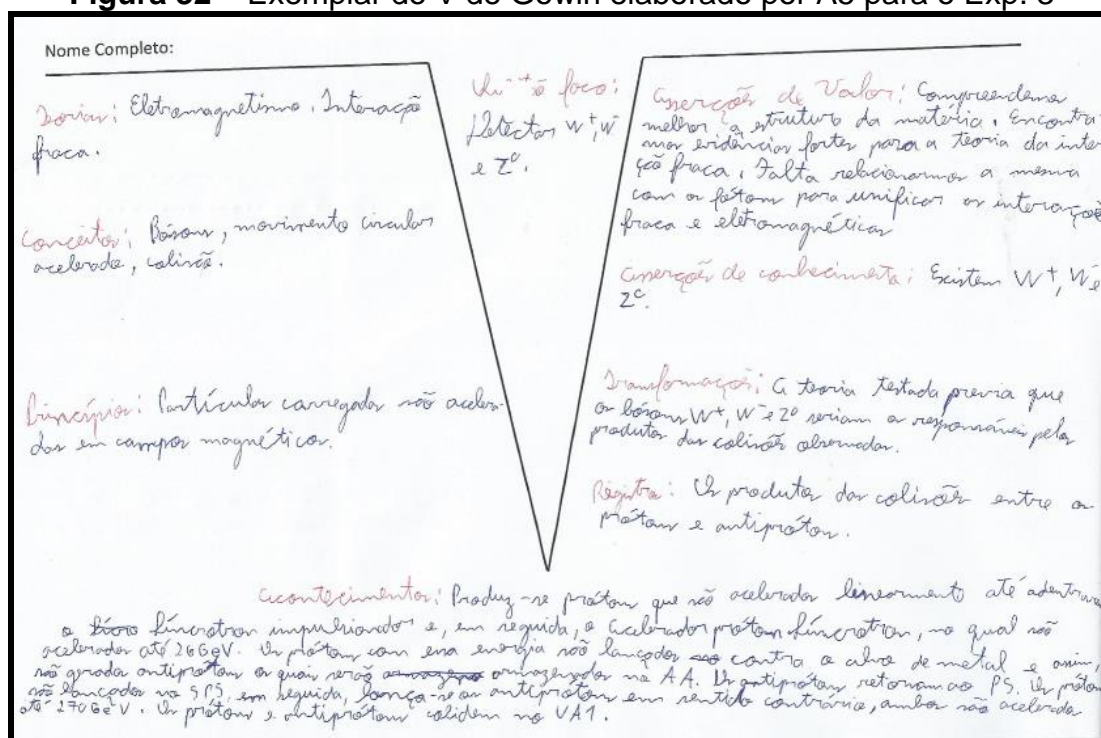 Figura 32 – Exemplar do V de Gowin elaborado por A8 para o Exp. 3
Nome Completo:
Teorias: Eletromagnetismo. Interação
fraca.
Conceitos: Bósons, movimento circular
acelerado, colisão.
Princípios: Partículas carregadas são acelera-
das em campos magnéticos.
foco:
Detectar W+, W-
e Z0.
Asserções de Valor: Compreendemos
melhor a estrutura da matéria. Encontra-
mos evidências fortes para a teoria da intera-
ção fraca. Falta relacionarmos a mesma
com os fótons para unificar as interações
fraca e eletromagnéticas
Asserções de conhecimento: Existem W+, W- e
Z0.
Transformações: A teoria testada previa que
os bósons W+, W- e Z0 seriam os responsáveis pelos
produtos das colisões observadas.
Registros: Os produtos das colisões entre os
prótons e antiprótons.
Acontecimentos: Produz-se prótons que são acelerados linearmente até adentrarem
o Síncrotron impulsionador e, em seguida, o acelerador próton síncrotron, no qual são
acelerados até 26 GeV. Os prótons com essa energia são lançados contra o alvo de metal e assim,
são gerados antiprótons os quais serão armazenados na AA. Os antiprótons retornam ao PS. Os prótons
são lançados no SPS, em seguida, lança-se os antiprótons em sentido contrário, ambos são acelerados
até 270 GeV. Os prótons e antiprótons colidem no UA1.